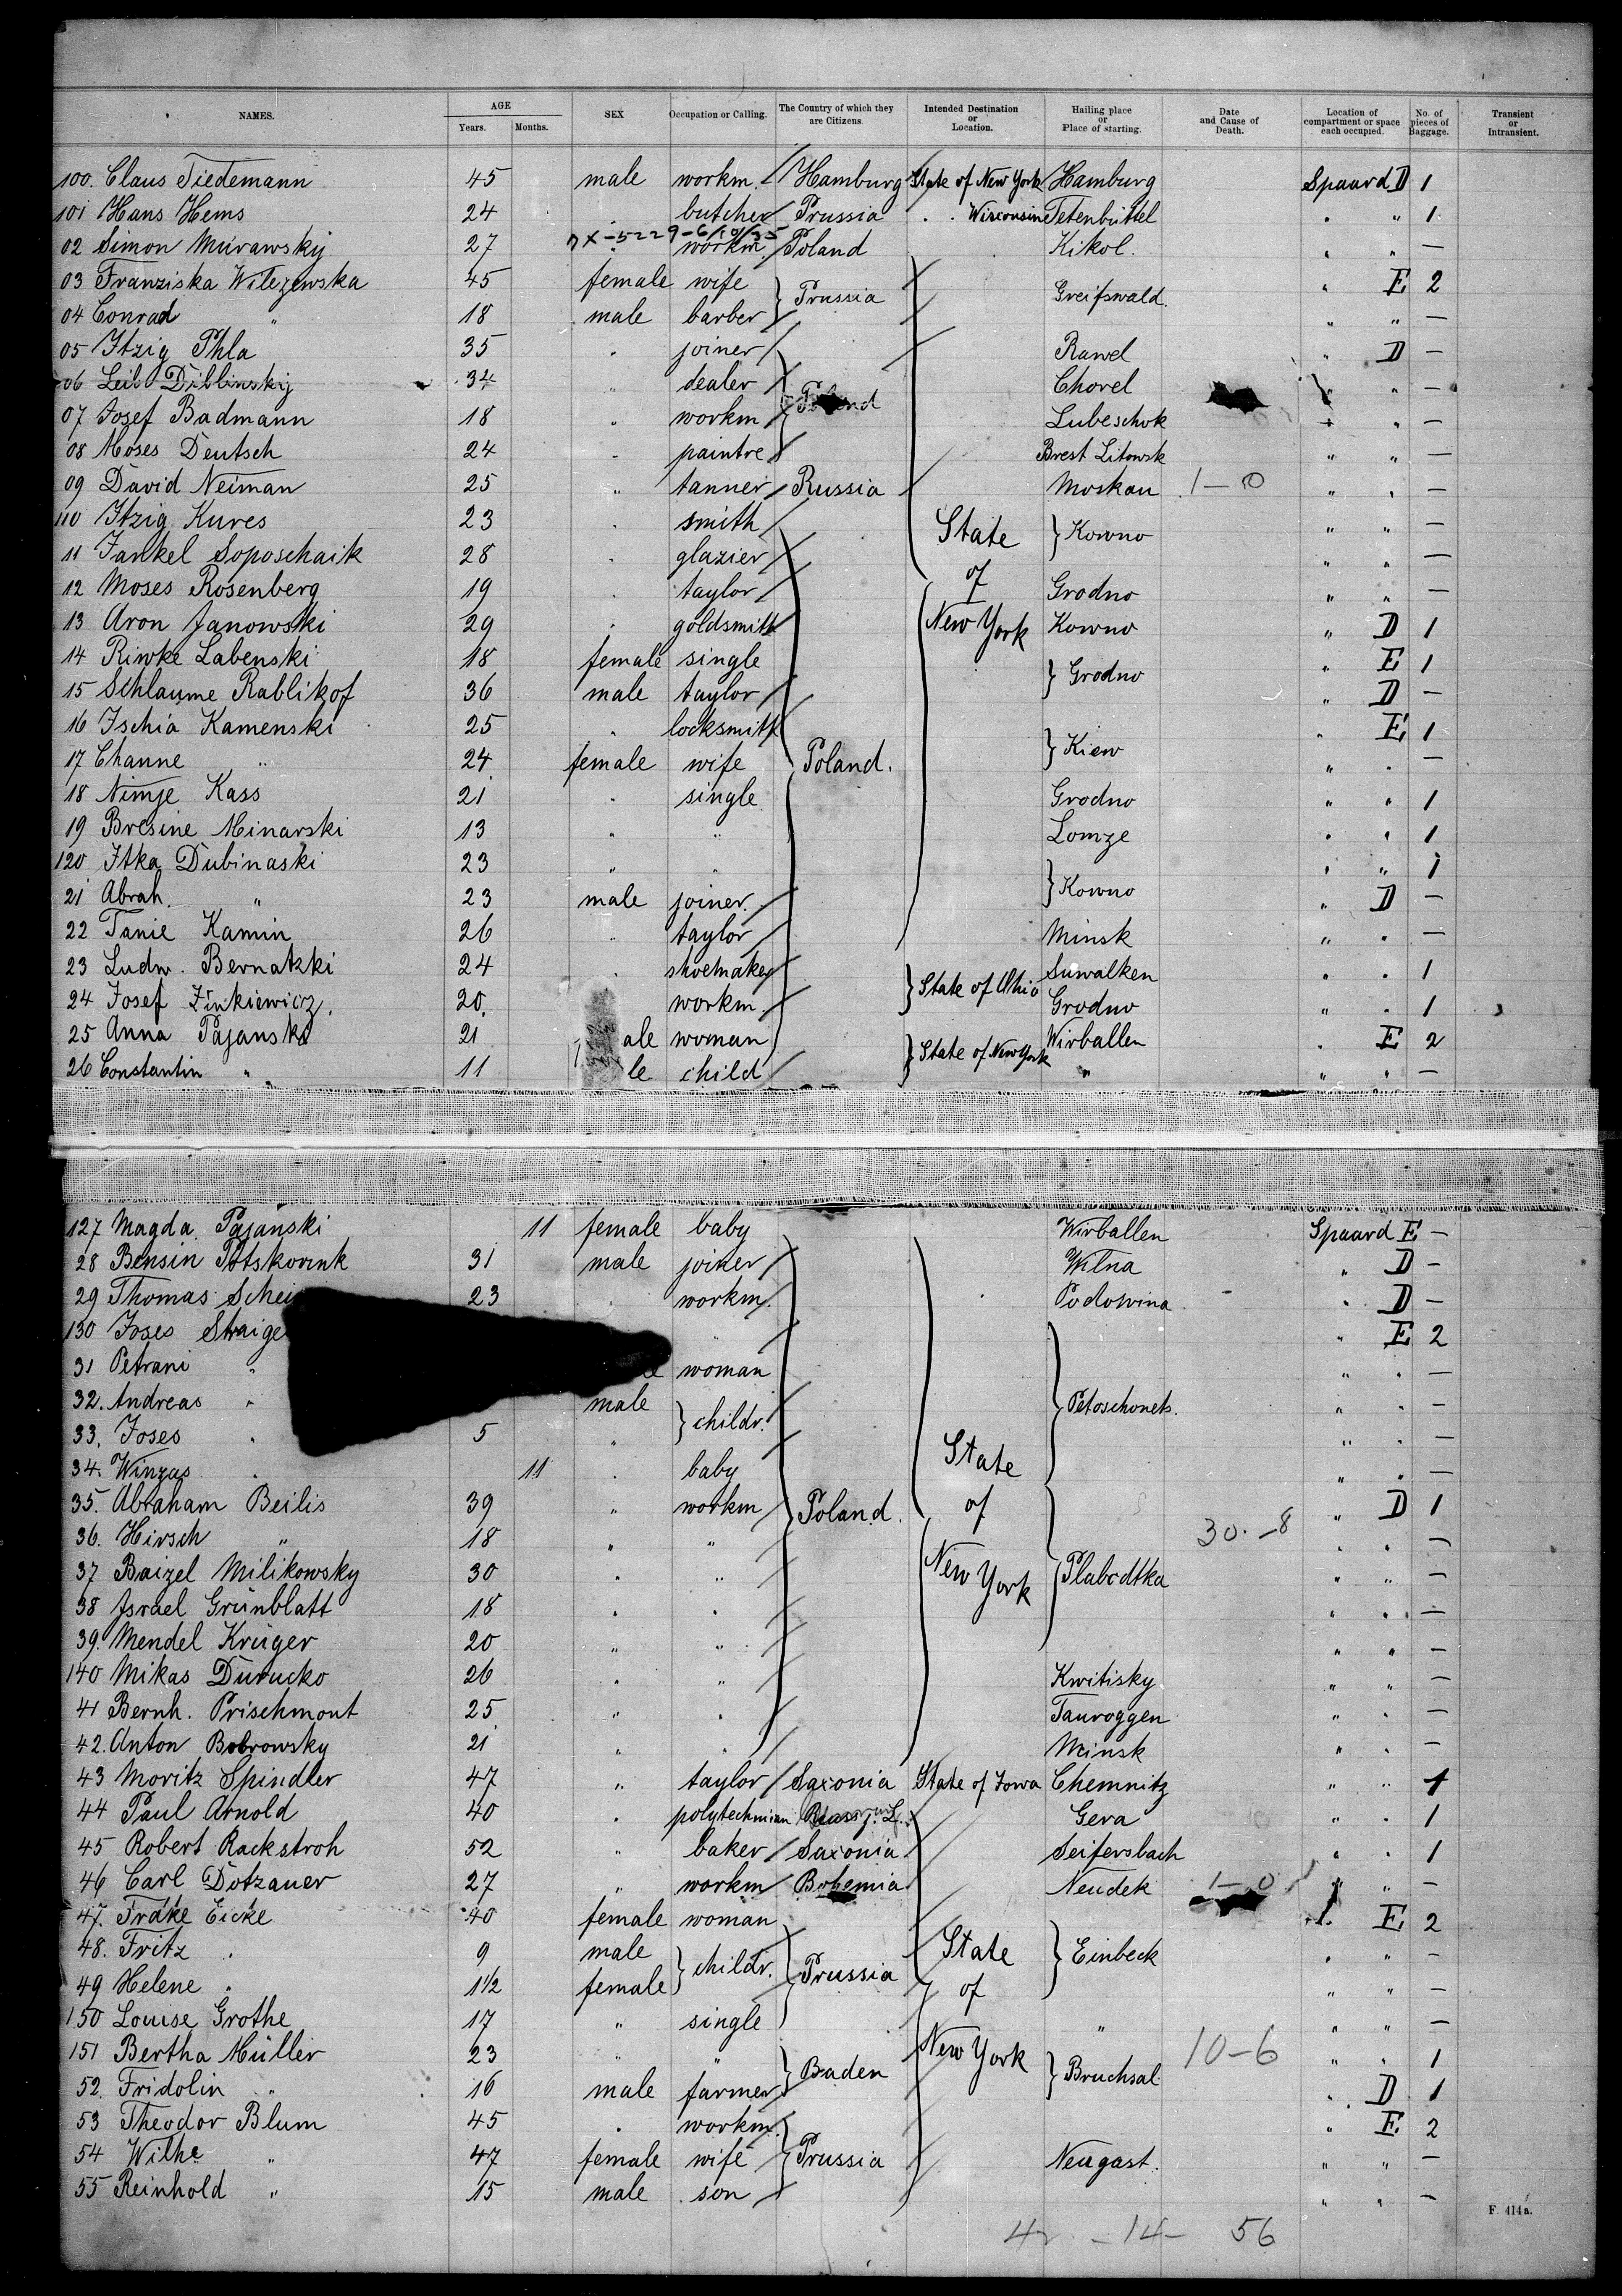 NAMES. AGE SEX Occupation or Calling. The Country of which they are Citizens. Intended Destination or Location. Hailing place or Place of starting. Date and Cause of Death. Location of compartment or space each occupied. No. of pieces of Baggage. Transient or Intransient.
Years. Months.
100. Claus Tiedemann 45 male workm. Hamburg State of New York Hamburg Spaard D 1
101 Hans Hems 24 " butcher Prussia " " Wisconsin Tetenbüttel " " 1
7X-5229-6/10/35
02 Simon Murawsky 27 workm. Poland Kikol. " " —
03 Franziska Wilezewska 45 female wife } Prussia Greifswald. " E 2
04 Conrad " 18 male barber " " —
05 Itzig Phla 35 " joiner Rawel " D —
06 Leib Diblinskij 34 " dealer Poland Chorel " —
07 Josef Badmann 18 " workm Lubeschok " —
08 Moses Deutsch 24 " paintre Brest Litowsk " " —
09 David Neiman 25 " tanner Russia Moskau 1—0 " " —
110 Itzig Kures 23 " smith State } Kowno " " —
11 Jankel Soposchaik 28 " glazier of " " —
12 Moses Rosenberg 19 " taylor Grodno " " —
13 Aron Janowski 29 " goldsmith New York Kowno " D 1
14 Riwke Labenski 18 female single } Grodno " E 1
15 Schlaume Rablikof 36 male taylor " D —
16 Ischia Kamenski 25 " locksmith } Kiew " E 1
17 Channe " 24 female wife Poland. " " —
18 Nimje Kass 21 " single Grodno " " 1
19 Bresine Minarski 13 " " Lomze " " 1
120 Itka Dubinaski 23 " " } Kowno " " 1
21 Abrah. " 23 male joiner. " D —
22 Tanie Kamin 26 " taylor Minsk " " —
23 Ludw. Bernatzki 24 " shoemaker } State of Ohio Suwalken " " 1
24 Josef Zinkiewicz. 20. workm. Grodno " " 1
25 Anna Pajanski 21 ale woman } State of New York Wirballen " E 2
26 Constantin " 11 le child " " " —
127 Magda Pajanski 11 female baby Wirballen Spaard E —
28 Bensin Potskornk 31 male joiner Wilna " D —
29 Thomas Schei 23 " workm. Podowina " D —
130 Joses Straige " " E 2
31 Petrani " woman " " —
32. Andreas " male } childr. } Petoschonets. " " —
33. Joses " 5 " " " —
34. Winzas " 11 " baby State " " —
35. Abraham Beilis 39 " workm Poland. of " D 1
36. Hirsch " 18 " " 30.—8 " " —
37 Baizel Milikowsky 30 " " New York Plabodtka " " —
38 Israel Grünblatt 18 " " " " —
39. Mendel Krüger 20 " " " " —
140 Mikas Durucko 26 " " Kwitisky " " —
41 Bernh. Prischmont 25 " " Tauroggen " " —
42. Anton Bobrowsky 21 " " Minsk " " —
43 Moritz Spindler 47 " taylor Saxonia State of Iowa Chemnitz " " 1
44 Paul Arnold 40 " polytechnian Reuss j. L. Gera " " 1
45 Robert Rackstroh 52 " baker Saxonia Seifersbach " " 1
46 Carl Dotzauer 27 " workm Bohemia Neudek 1—0 " " —
47. Frdke Eicke 40 female woman " E 2
48. Fritz " 9 male } childr. Prussia State } Einbeck " " —
49 Helene " 1 1/2 female of " " —
150 Louise Grothe 17 " single " " " —
151 Bertha Müller 23 " " } Baden New York } Bruchsal 10—6 " " 1
52. Fridolin " 16 male farmer " D 1
53 Theodor Blum 45 " workm. " E 2
54 Wilhe " 47 female wife } Prussia Neugast. " " —
55 Reinhold " 15 male son " " —
F. 414a.
42 — 14 — 56